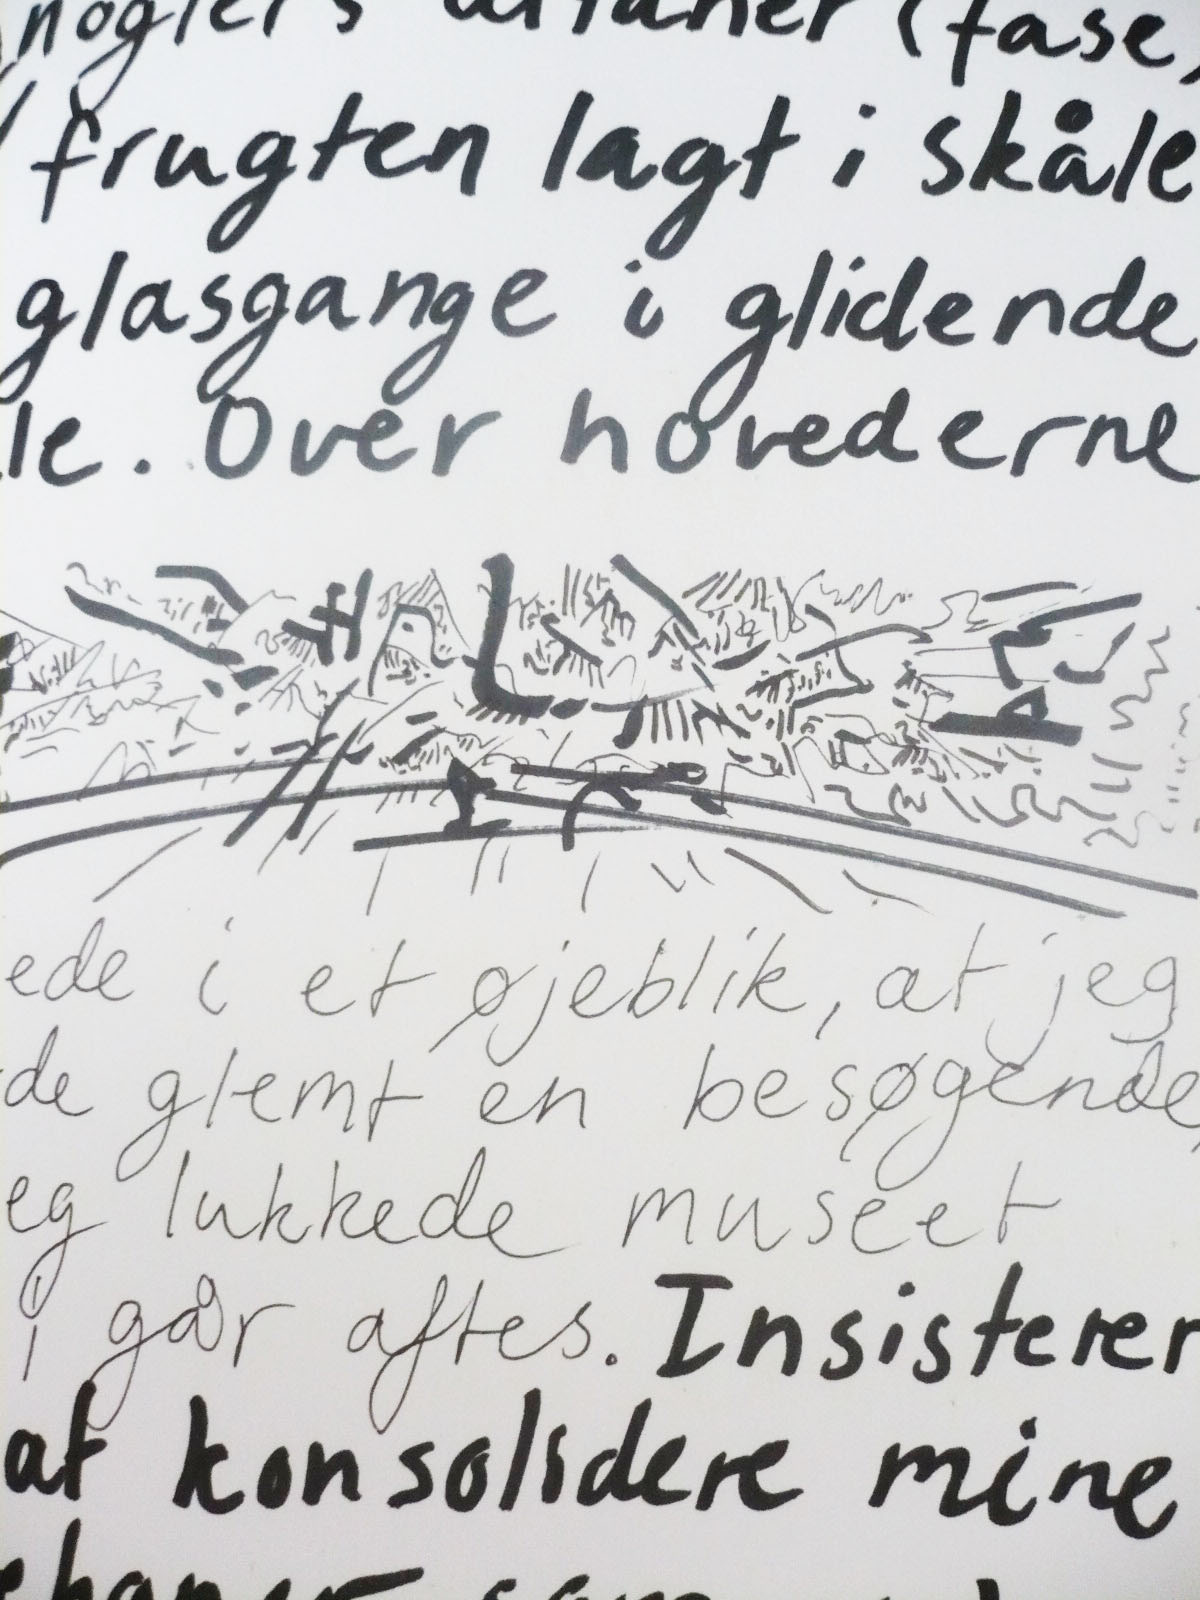 nøglers altaner (fase,
frugten lagt i skåle
glasgange i glidende
le. Over hovederne
ede i et øjeblik, at jeg
de glemt en besøgende,
eg lukkede museet
i går aftes. Insisterer
at konsolidere mine